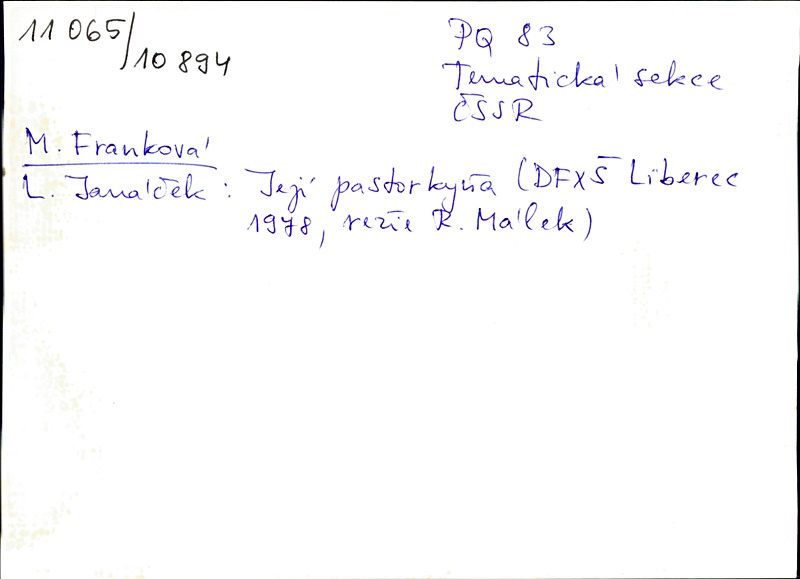 11 065/10 894
PQ 83
Tematická sekce
ČSSR
M. Franková
L. Janáček: Její pastorkyňa (DFXŠ Liberec
1978, režie R. Málek)